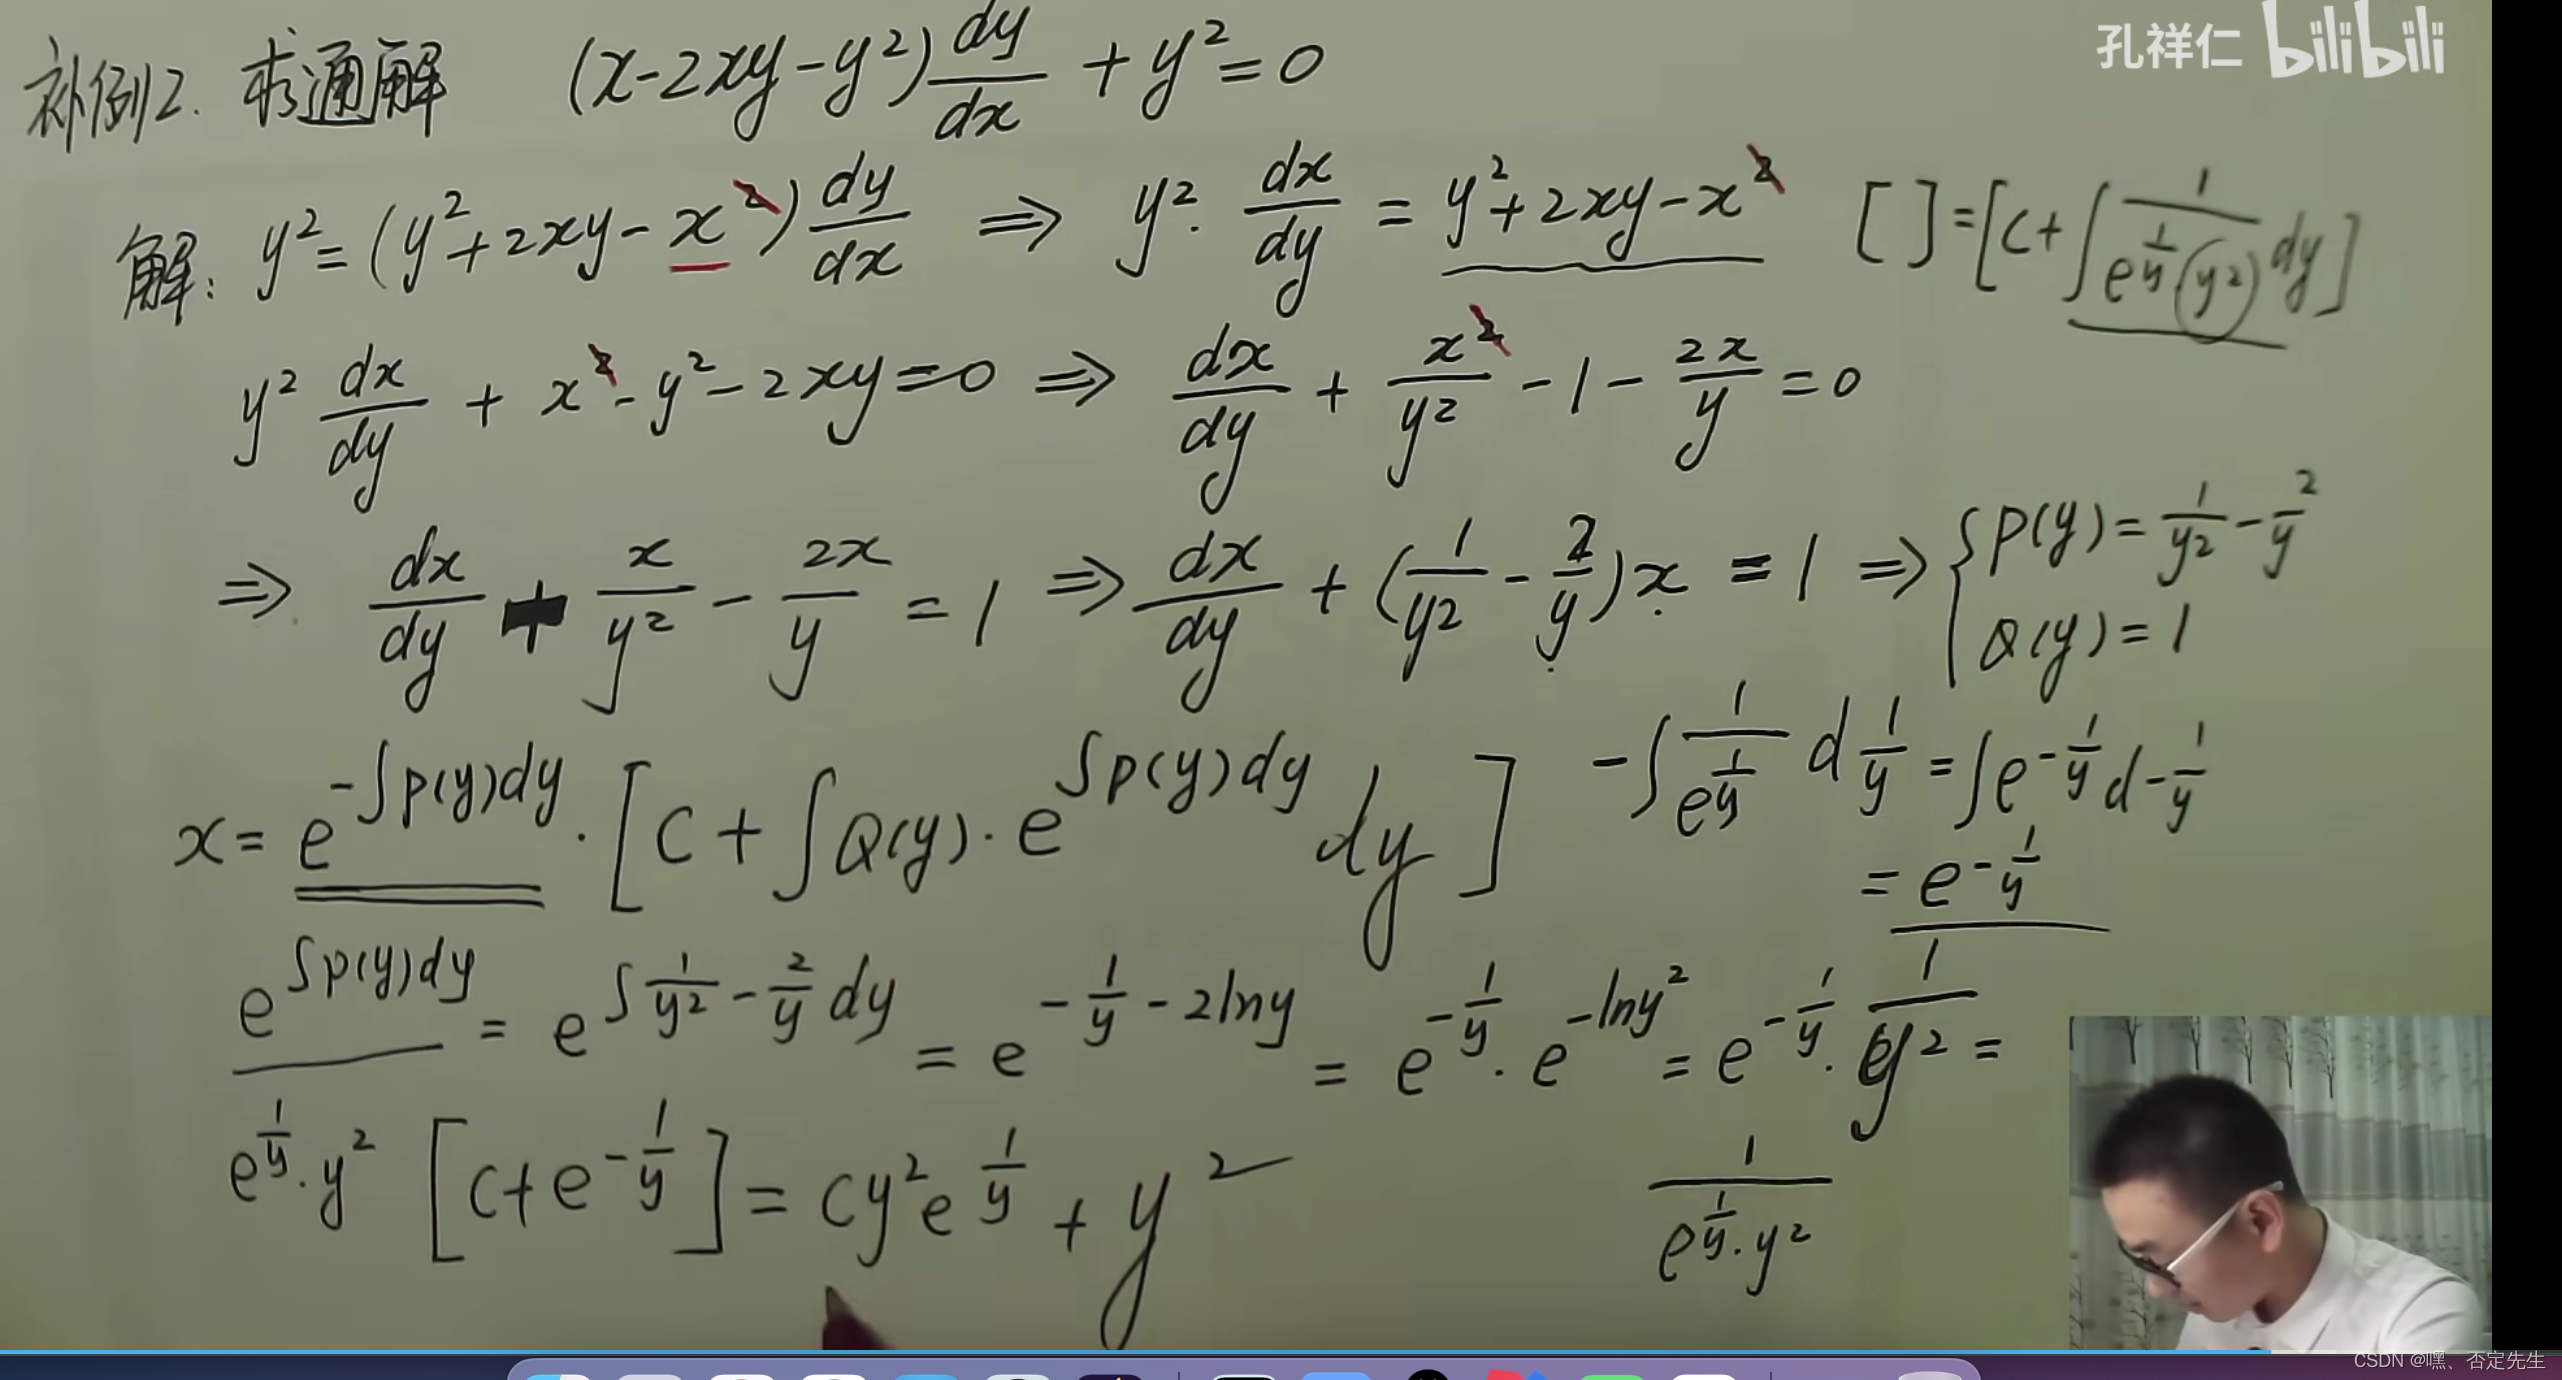 孔祥仁 bilibili
补例2. 求通解 (x-2xy-y²) dy/dx + y² = 0
解: y² = (y²+2xy-x²) dy/dx ⇒ y²· dx/dy = y²+2xy-x² [ ] = [c+∫ 1/(e^(1/y)(y²)) dy]
y² dx/dy + x²-y²-2xy=0 ⇒ dx/dy + x²/y² - 1 - 2x/y = 0
⇒ dx/dy + x/y² - 2x/y = 1 ⇒ dx/dy + (1/y² - 2/y)x = 1 ⇒ { P(y) = 1/y² - 2/y
Q(y) = 1
x = e^(-∫P(y)dy) · [C + ∫Q(y)·e^(∫P(y)dy) dy] -∫ 1/e^(1/y) d 1/y = ∫e^(-1/y) d -1/y
= e^(-1/y)
e^(∫P(y)dy) = e^(∫ 1/y² - 2/y dy) = e^(-1/y - 2lny) = e^(-1/y) · e^(-lny²) = e^(-1/y) · 1/y² =
1/(e^(1/y)·y²)
e^(1/y)·y² [C+e^(-1/y)] = cy²e^(1/y) + y²
CSDN @嘿、否定先生